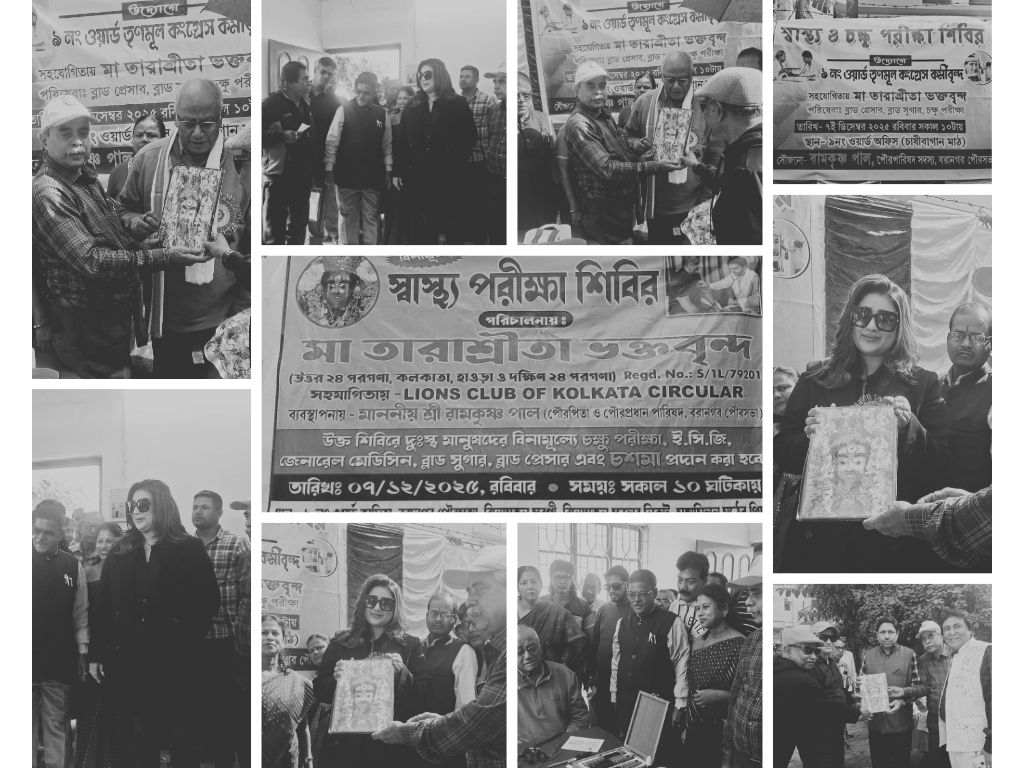 উদ্যোগে
৯ নং ওয়ার্ড তৃণমূল কংগ্রেস কর্মী
সহযোগিতায় মা তারাশ্রীতা ভক্তবৃ
পরিষেবাঃ ব্লাড প্রেসার, ব্লাড সুগার, চক্ষু পরী
ডিসেম্বর ২০২৫ রবিবার সকাল ১০
উদ্যোগে
৯ নং ওয়ার্ড তৃণমূল কংগ্রেস কর্মীবৃ
সহযোগিতায় মা তারাশ্রীতা ভক্তবৃন্দ
ব্লাড প্রেসার, ব্লাড সুগার, চক্ষু পরীক্ষা
ডিসেম্বর ২০২৫ রবিবার সকাল ১০টায়
স্বাস্থ্য ও চক্ষু পরীক্ষা শিবির
উদ্যোগে
৯ নং ওয়ার্ড তৃণমূল কংগ্রেস কর্মীবৃন্দ
সহযোগিতায় মা তারাশ্রীতা ভক্তবৃন্দ
পরিষেবাঃ ব্লাড প্রেসার, ব্লাড সুগার, চক্ষু পরীক্ষা
তারিখ- ৭ই ডিসেম্বর ২০২৫ রবিবার সকাল ১০টায়
স্থান- ৯নং ওয়ার্ড অফিস (চাষীবাগান মাঠ)
সৌজন্যে- রামকৃষ্ণ পাল, পৌরপারিষদ সদস্য, বরানগর পৌরসভা
স্বাস্থ্য পরীক্ষা শিবির
পরিচালনায়ঃ
মা তারাশ্রীতা ভক্তবৃন্দ
(উত্তর ২৪ পরগণা, কলকাতা, হাওড়া ও দক্ষিণ ২৪ পরগণা) Regd. No.: S/1L/79201
সহযোগিতায় -LIONS CLUB OF KOLKATA CIRCULAR
ব্যবস্থাপনায় - মাননীয় শ্রী রামকৃষ্ণ পাল (পৌরপিতা ও পৌরপ্রধান পারিষদ, বরানগর পৌরসভা)
উক্ত শিবিরে দুঃস্থ মানুষদের বিনামূল্যে চক্ষু পরীক্ষা, ই.সি.জি,
জেনারেল মেডিসিন, ব্লাড সুগার, ব্লাড প্রেসার এবং চশমা প্রদান করা হবে
তারিখঃ ০৭/১২/২০২৫, রবিবার • সময়ঃ সকাল ১০ ঘটিকায়
কর্মীবৃন্দ
ভক্তবৃন্দ
চক্ষু পরীক্ষা